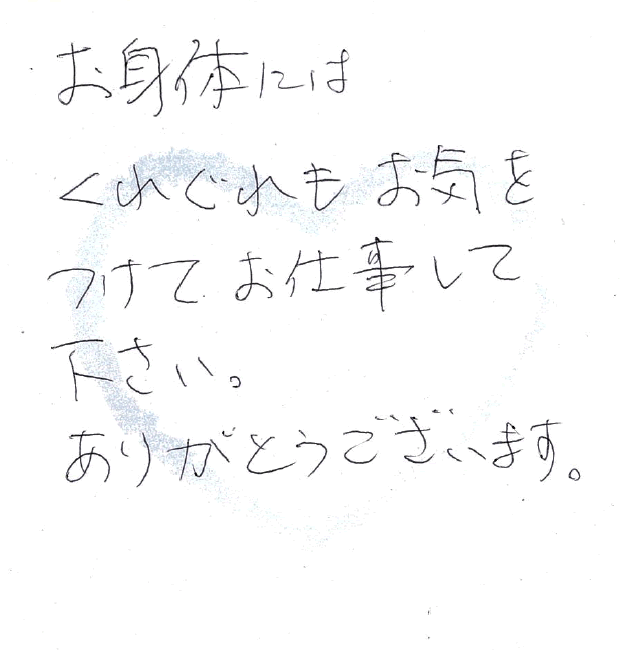 お身体には
くれぐれもお気を
つけてお仕事して
下さい。
ありがとうございます。